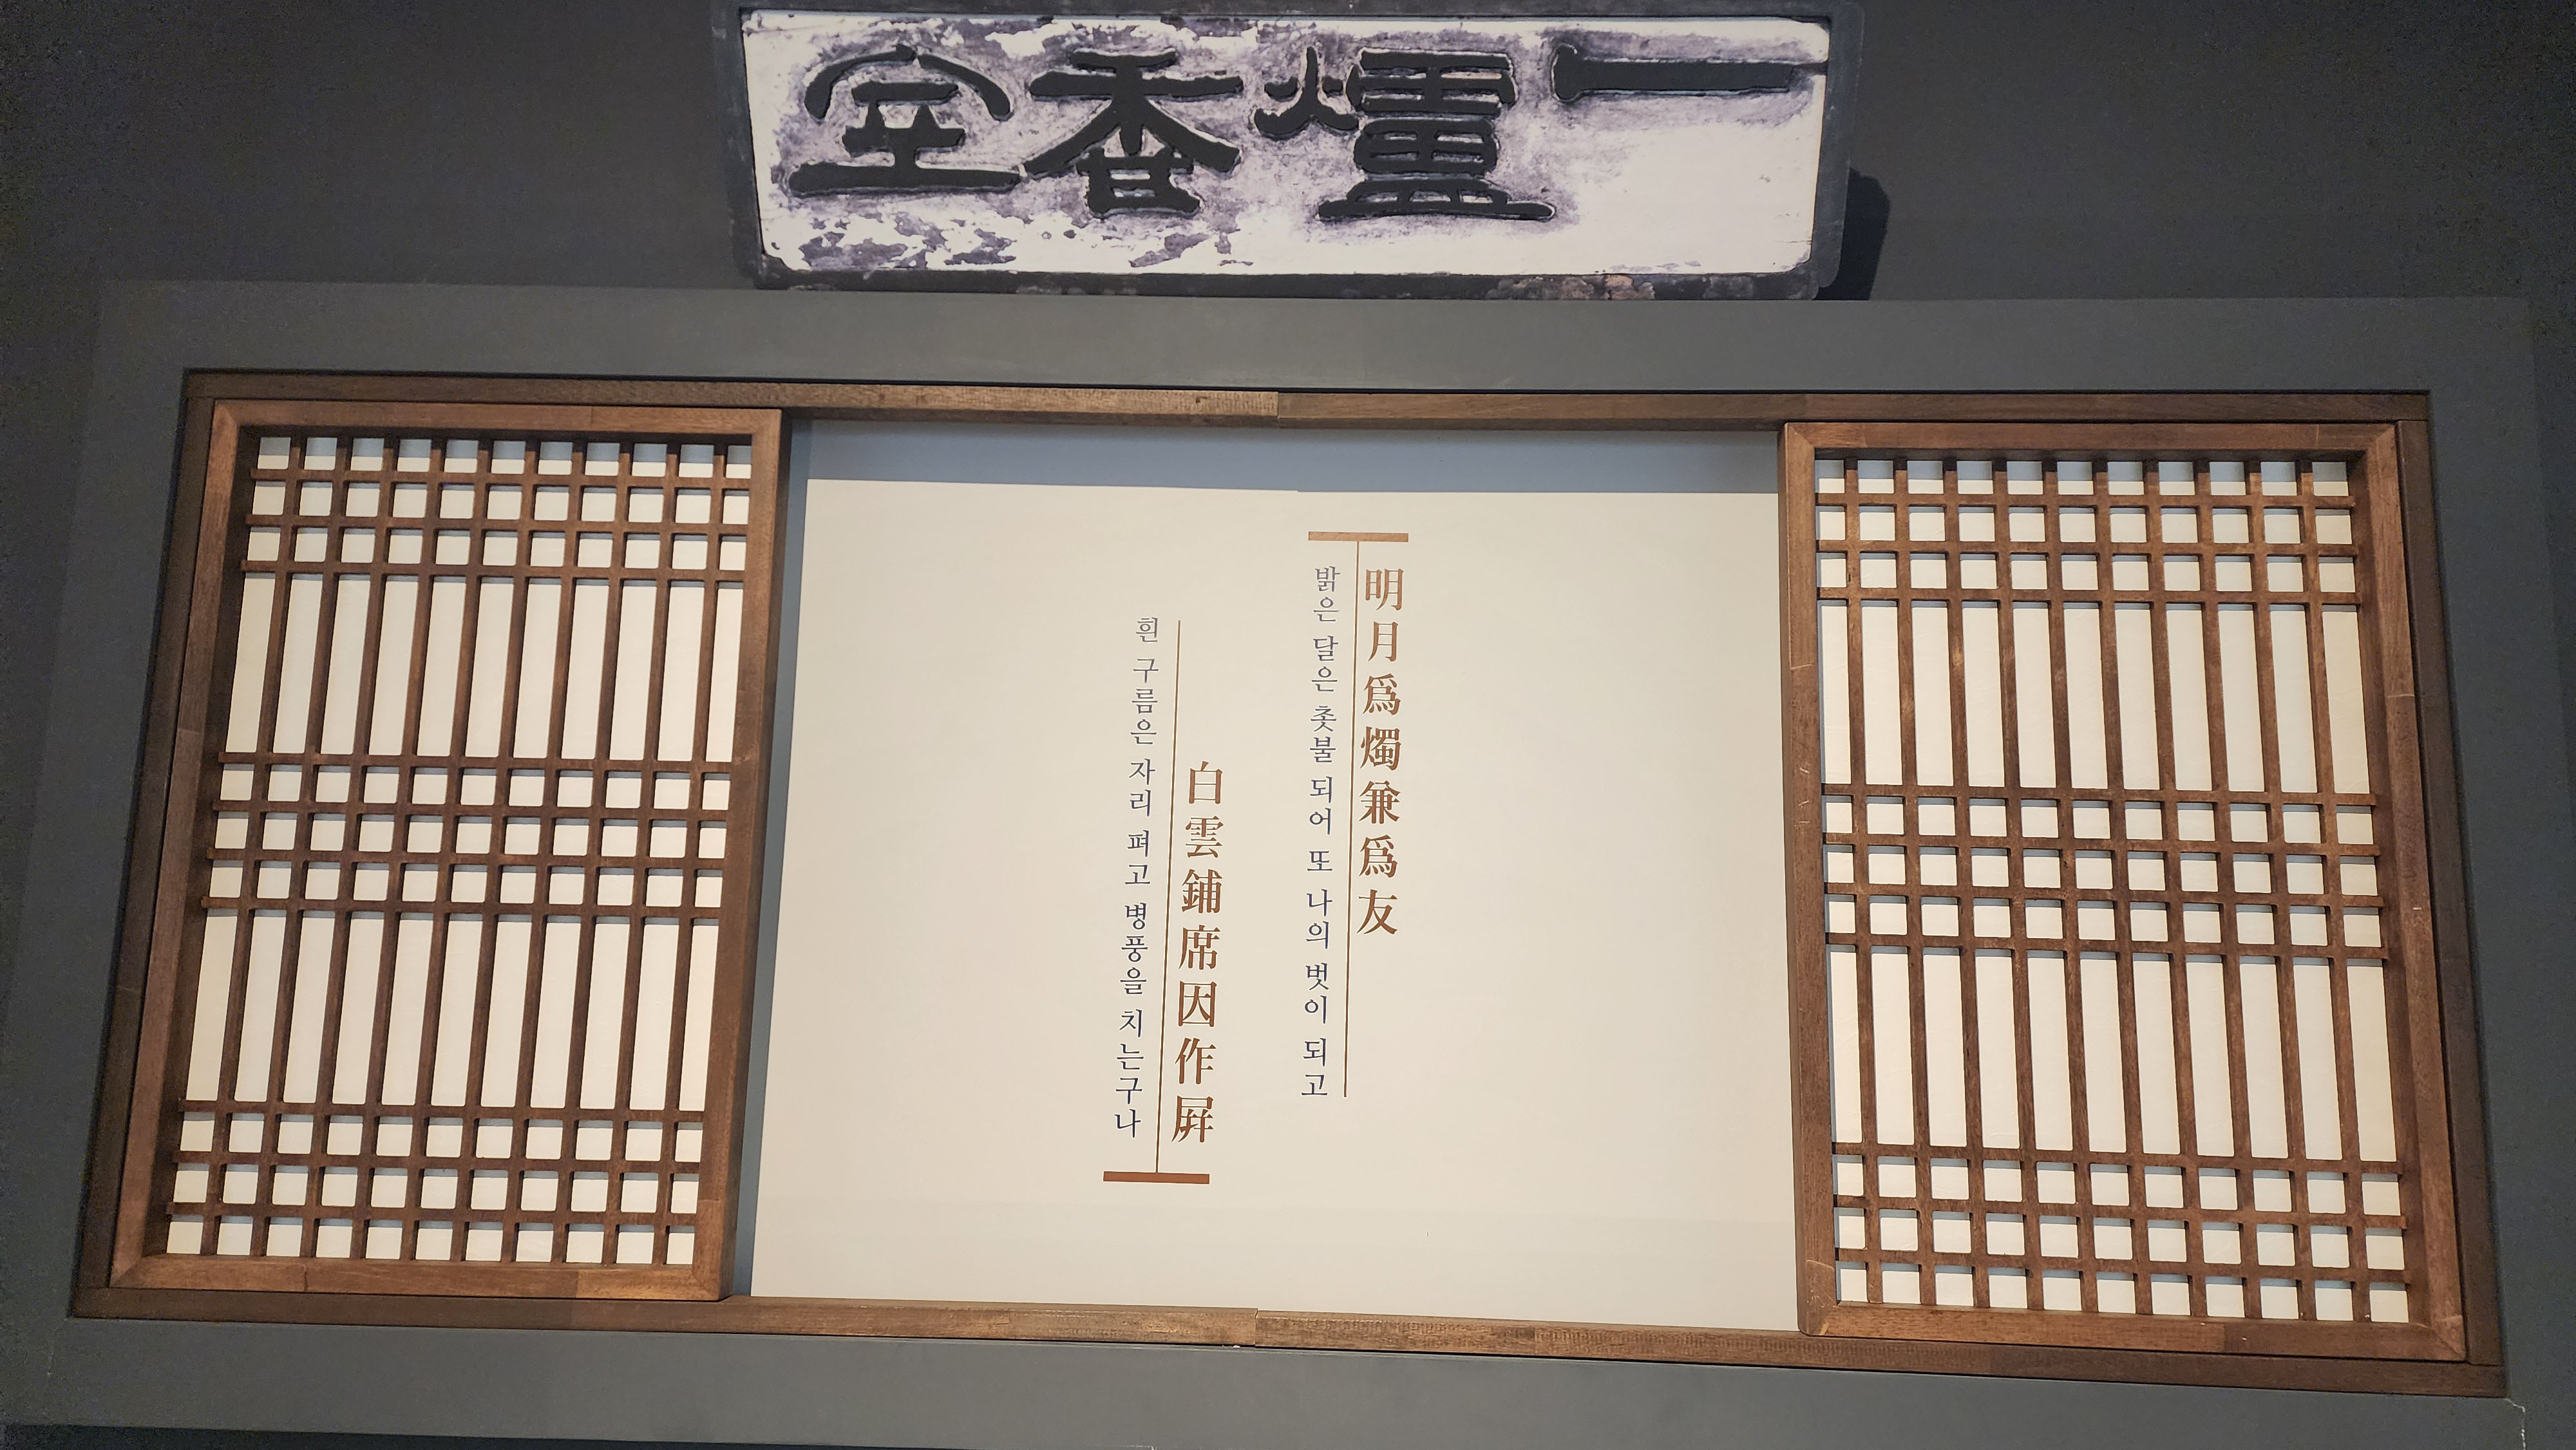 一爐香室
明月爲燭兼爲友
밝은 달은 촛불 되어 또 나의 벗이 되고
白雲鋪席因作屛
흰 구름은 자리 펴고 병풍을 치는구나